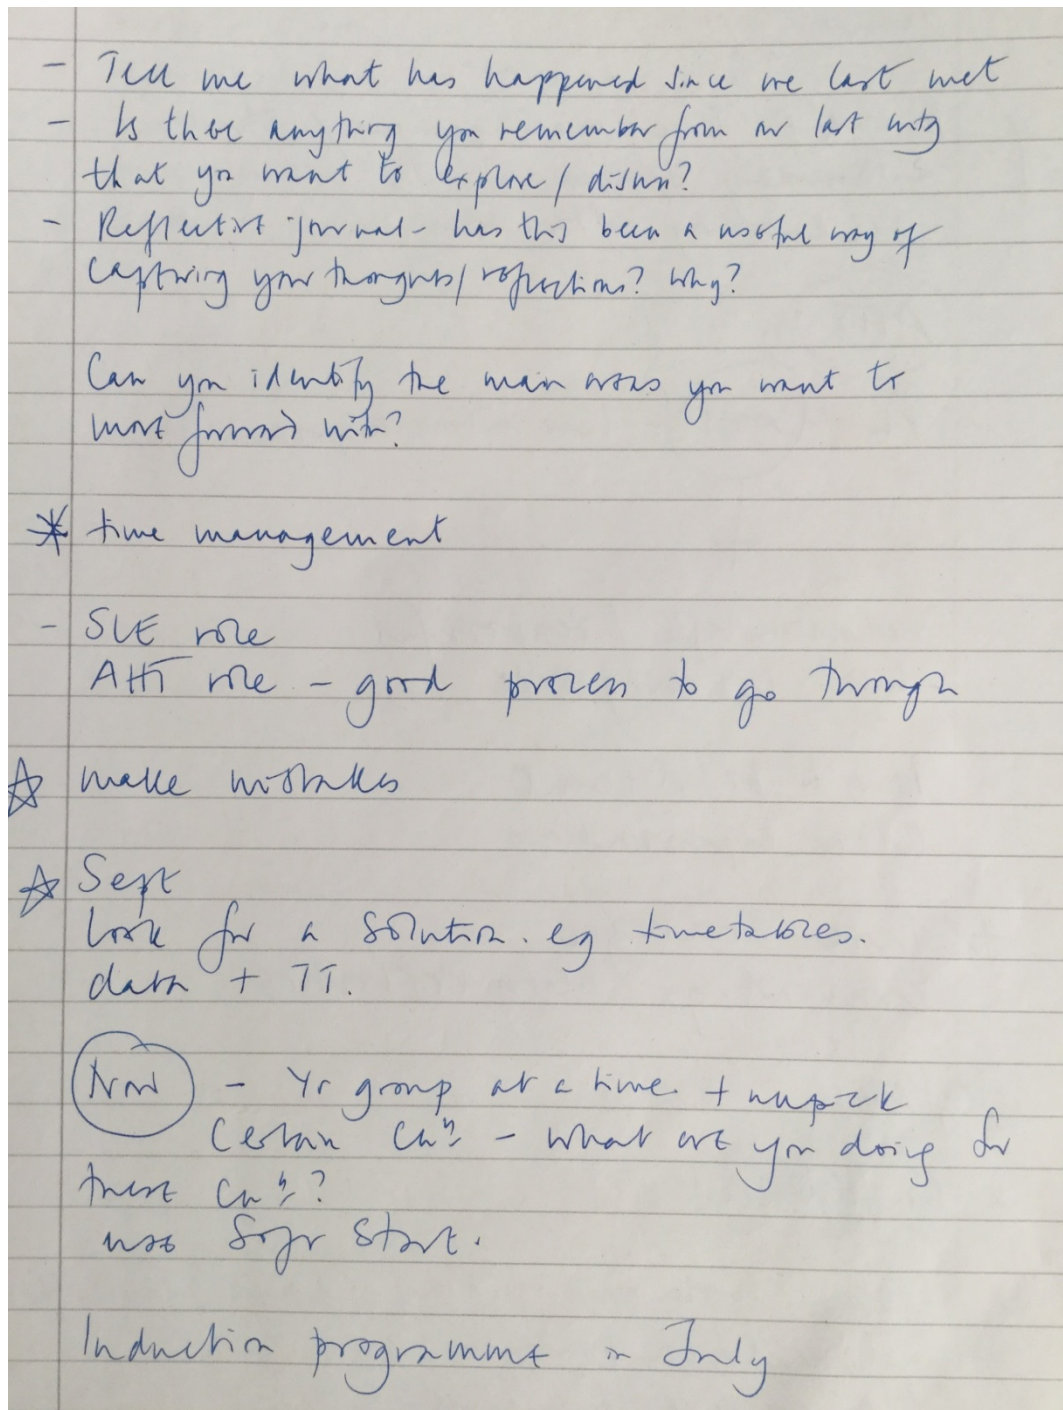 - Tell me what has happened since we last met
- Is there anything you remember from our last mtg
that you want to explore / discuss?
- Reflective journal - has this been a useful way of
capturing your thoughts / reflections? why?
Can you identify the main areas you want to
move forward with?
* time management
- SLE role
AHT role - good process to go through
☆ make mistakes
☆ Sept
look for a solution. eg timetables.
data + TT.
Now - Yr group at a time + unpick
certain chn - what are you doing for
these chn?
use soft start.
Induction programme in July